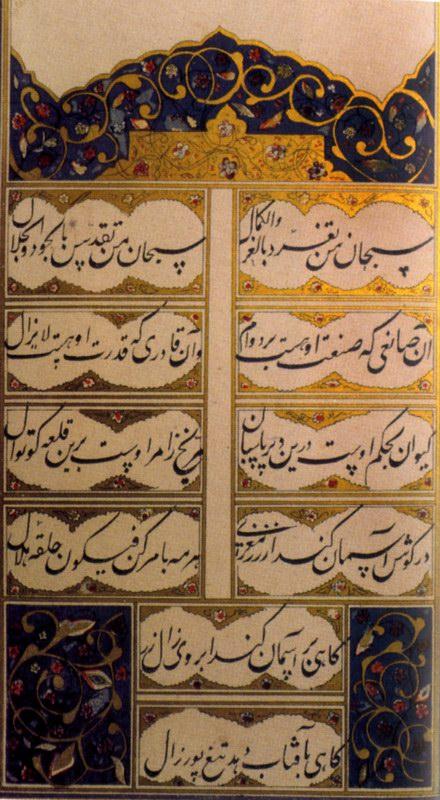 سبحان من تفرد بالعز والکمال
سبحان من تقدس بالجود والجلال
آن صانعی که صنعت اوهست بردوام
وآن قادری که قدرت اوهست لایزال
کیوان بحکم اوست درین دیر پاسبان
مریخ زامر اوست برین قلعه کوتوال
درگوش آسمان کند از زر مغربی
هر مه بامر کن فیکون حلقه هلال
کاهی بر آسمان کند ابروی زال زر
کاهی بآفتاب دهد تیغ پور زال